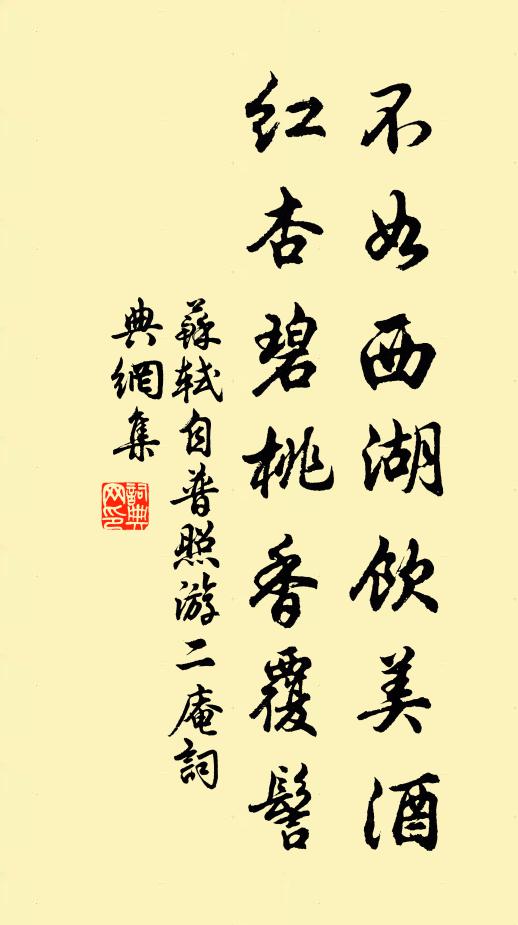 不如西湖飲美酒
紅杏碧桃香覆髻
蘇軾自普照游二庵詞
典網集
詞典網印